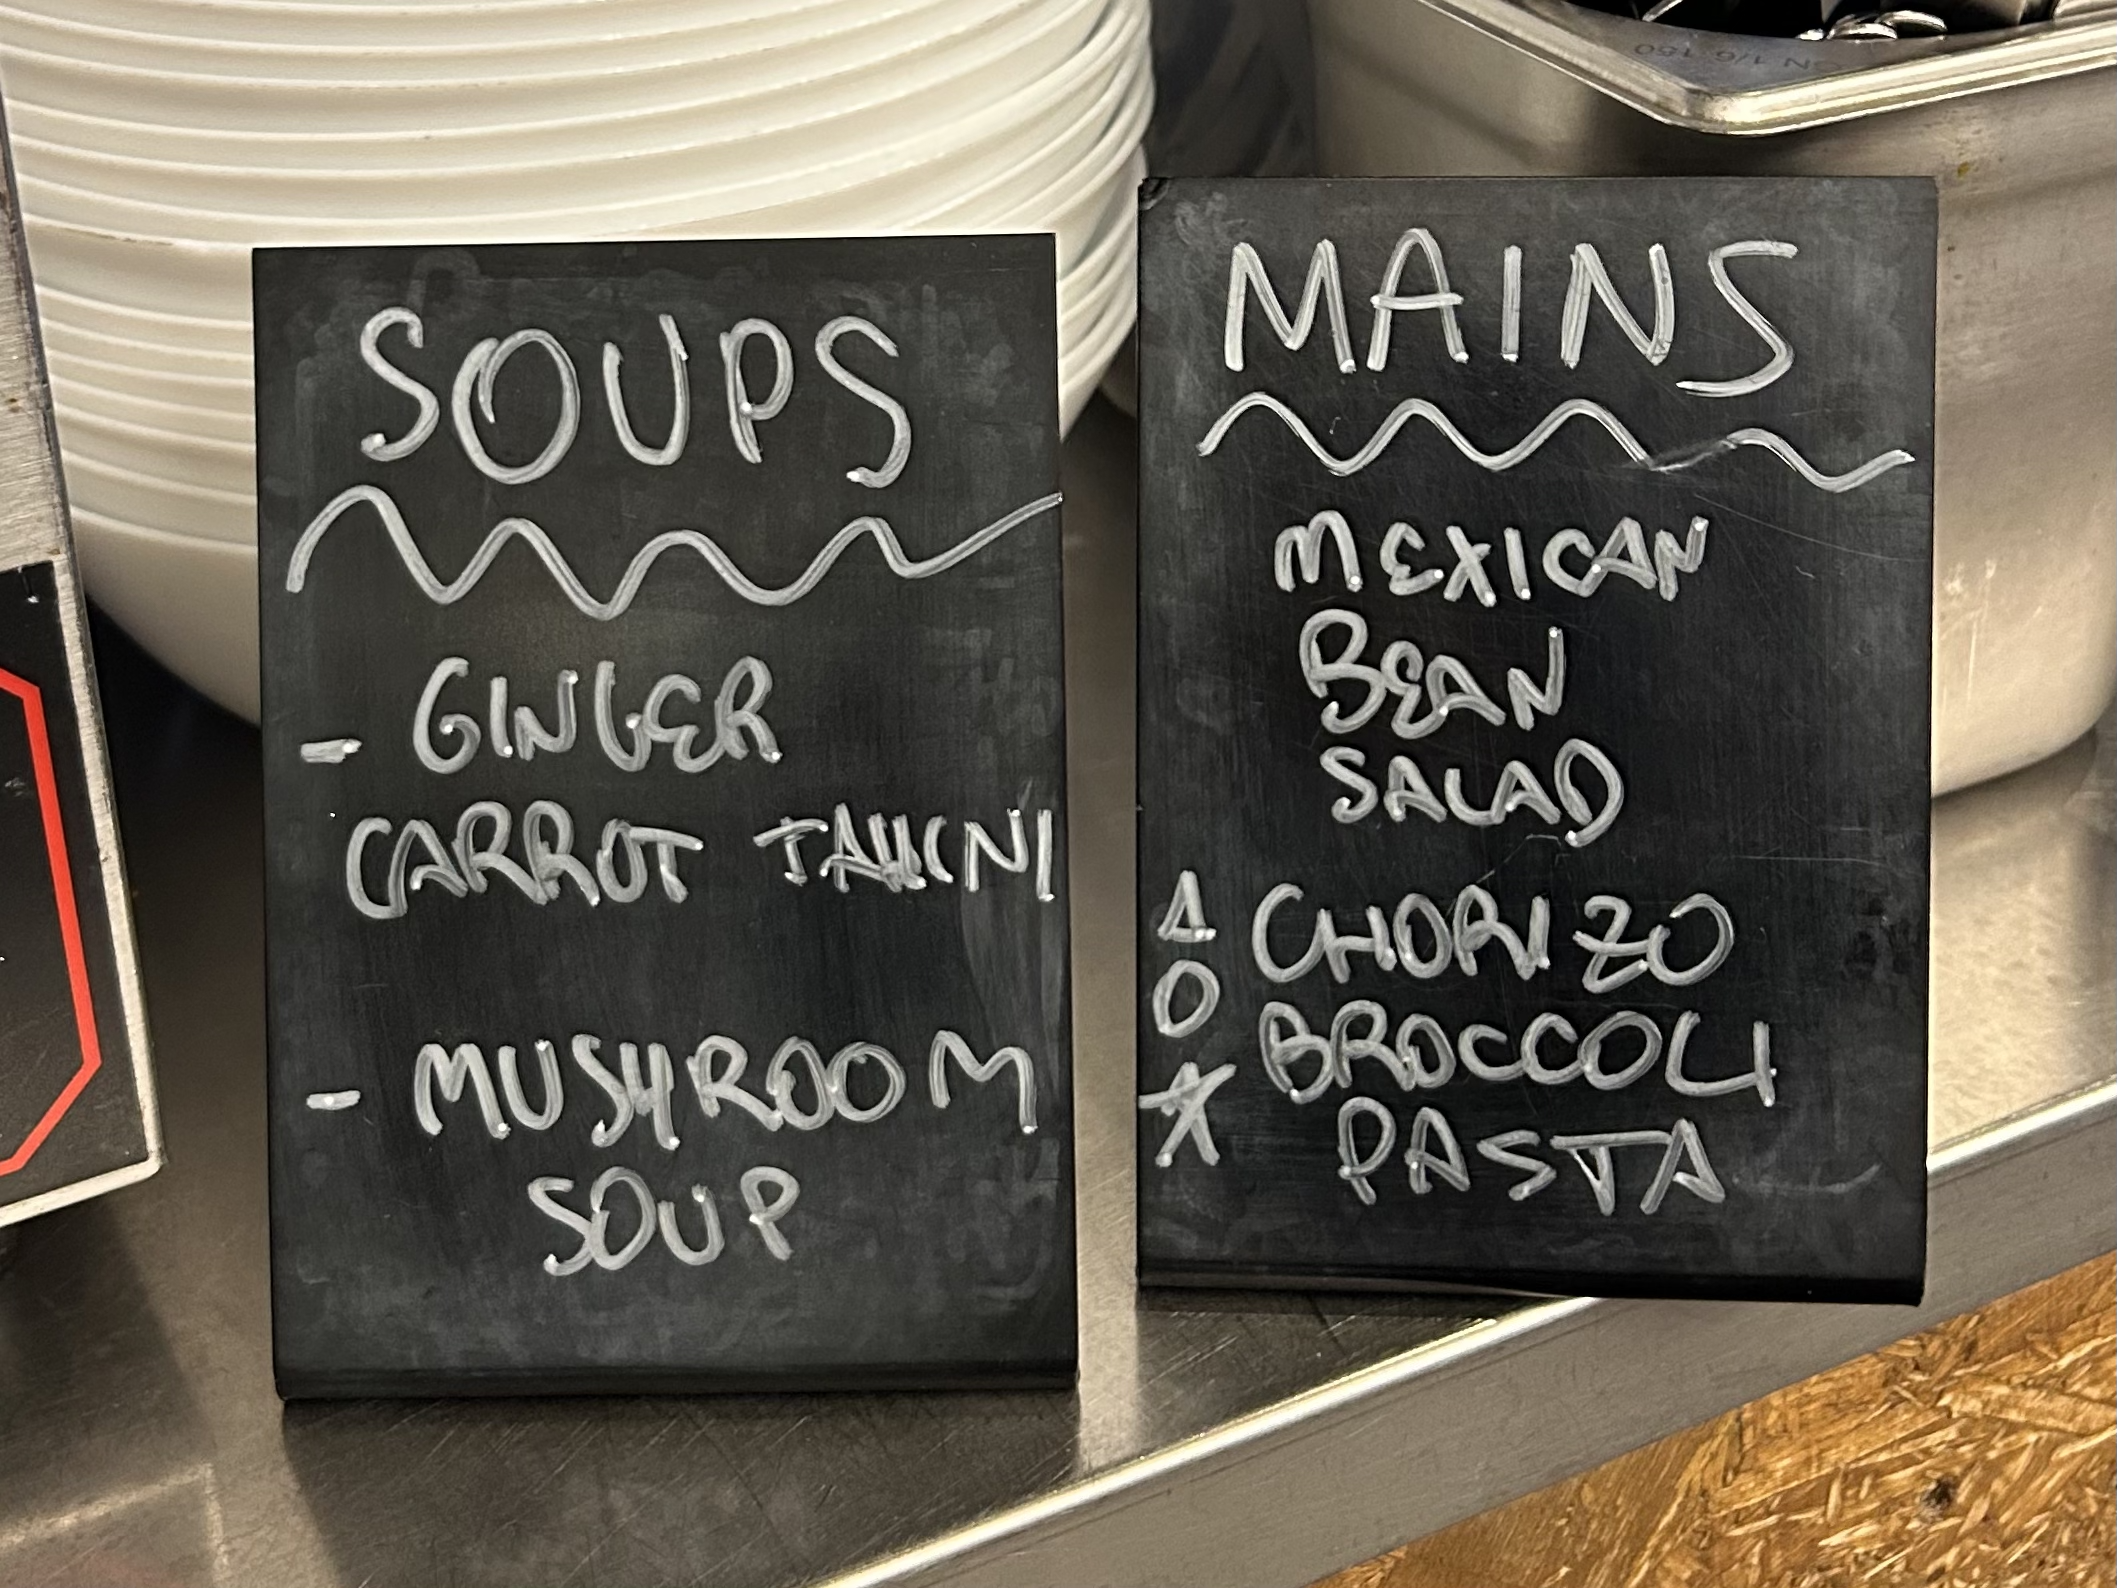 SOUPS
- GINGER
CARROT TAHINI
- MUSHROOM
SOUP
MAINS
MEXICAN
BEAN
SALAD
CHORIZO
BROCCOLI
PASTA
GN 1/6 150